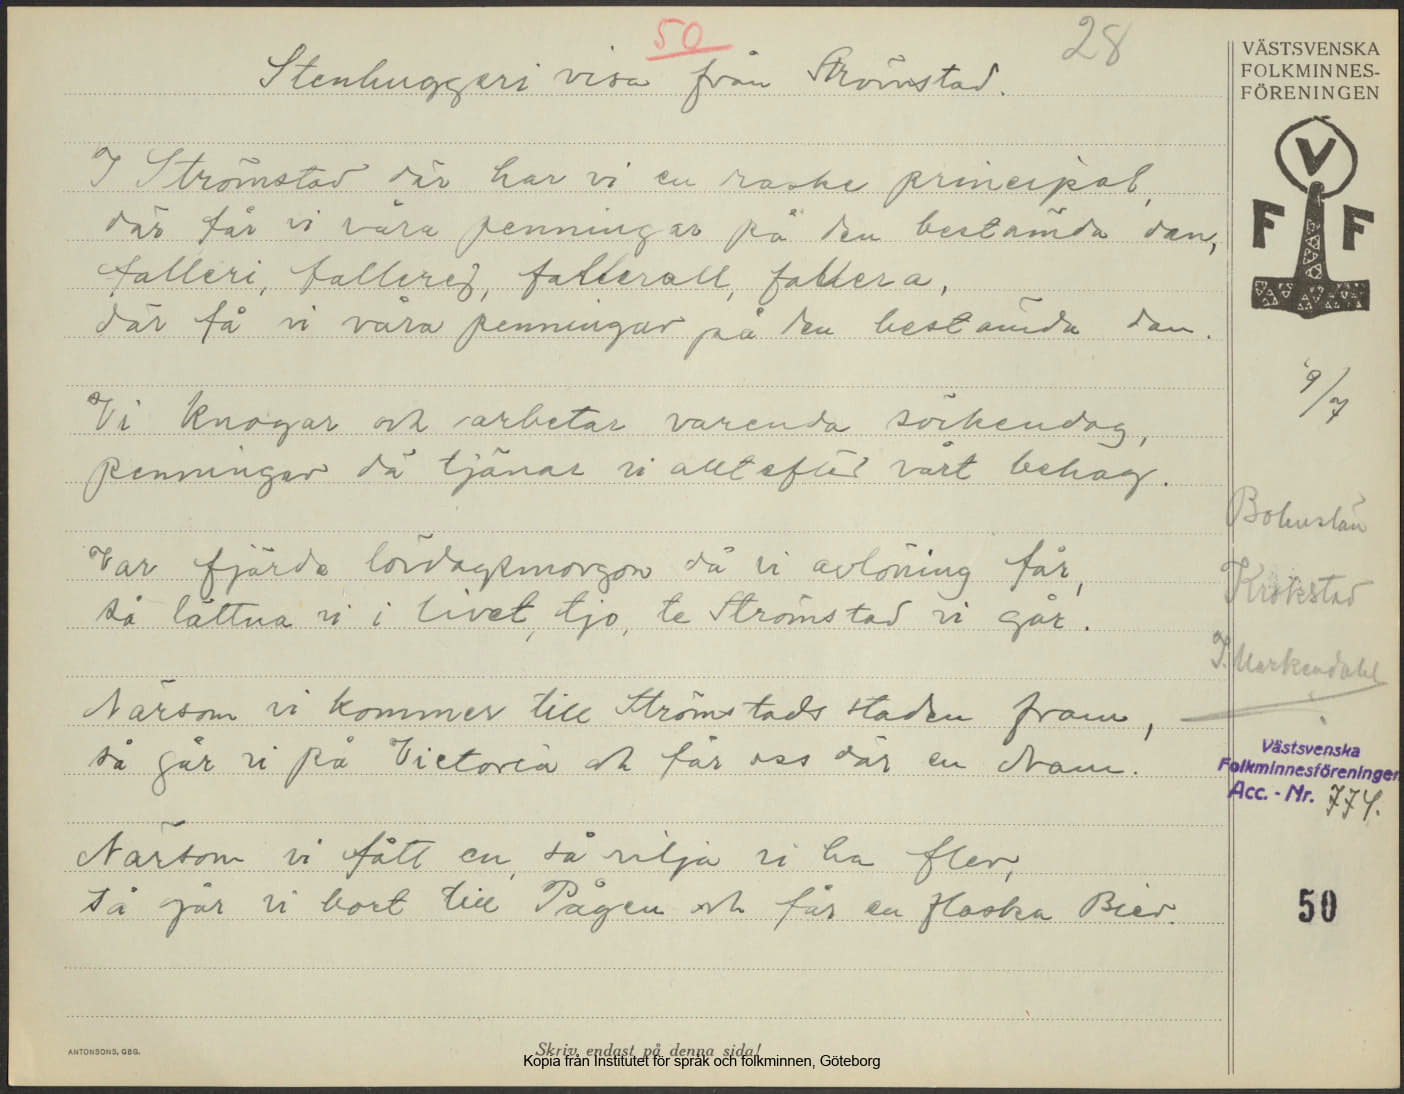 50
28
Stenhuggeri visa från Strömstad.
I Strömstad där har vi en raske principal,
där får vi våra penningar på den bestämda dan,
falleri, fallerej, fallerall, fallera,
där få vi våra penningar på den bestämda dan.
Vi knogar och arbetar varenda söckendag,
penningar då tjänar vi allt efter vårt behag.
Var fjärde lördagsmorgon då vi avlöning får,
så lättna vi i livet, tjo, te Strömstad vi går.
Närsom vi kommer till Strömstads staden fram,
så går vi på Victoria och får oss där en dram.
Närsom vi fått en, så vilja vi ha fler,
så går vi bort till Pågen och får en flaska Bier.
VÄSTSVENSKA
FOLKMINNES-
FÖRENINGEN
V
F F
9/7
Bohuslän
Krokstad
Västsvenska
Folkminnesföreningen
Acc. - Nr. 774.
50
ANTONSONS, GBG.
Skriv endast på denna sida!
Kopia från Institutet för språk och folkminnen, Göteborg